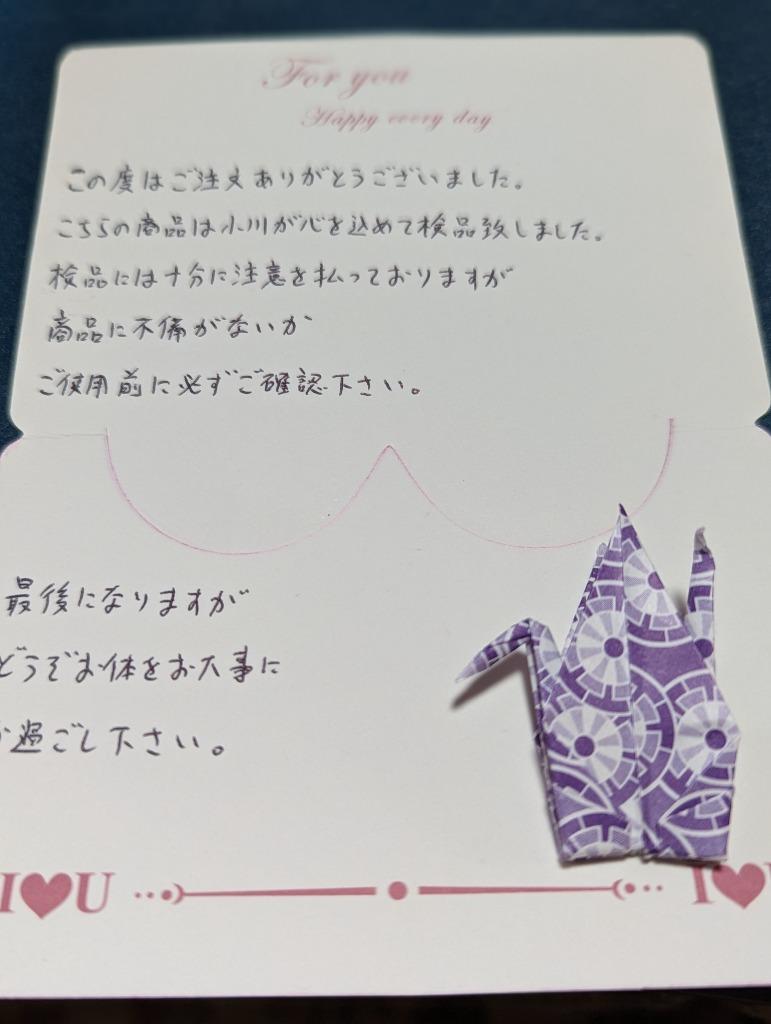 For you
Happy every day
この度はご注文ありがとうございました。
こちらの商品は小川が心を込めて検品致しました。
検品には十分に注意を払っておりますが
商品に不備がないか
ご使用前に必ずご確認下さい。
最後になりますが
どうぞお体をお大事に
お過ごし下さい。
I♥U
I♥U